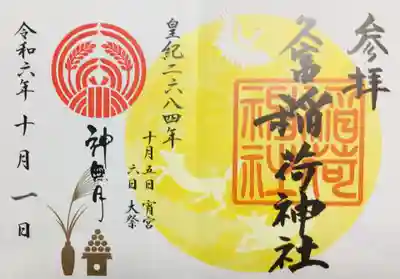 参拝
久富稲荷神社
稲荷
神社
皇紀二六八四年
十月五日 宵宮
六日 大祭
神無月
令和六年十月一日